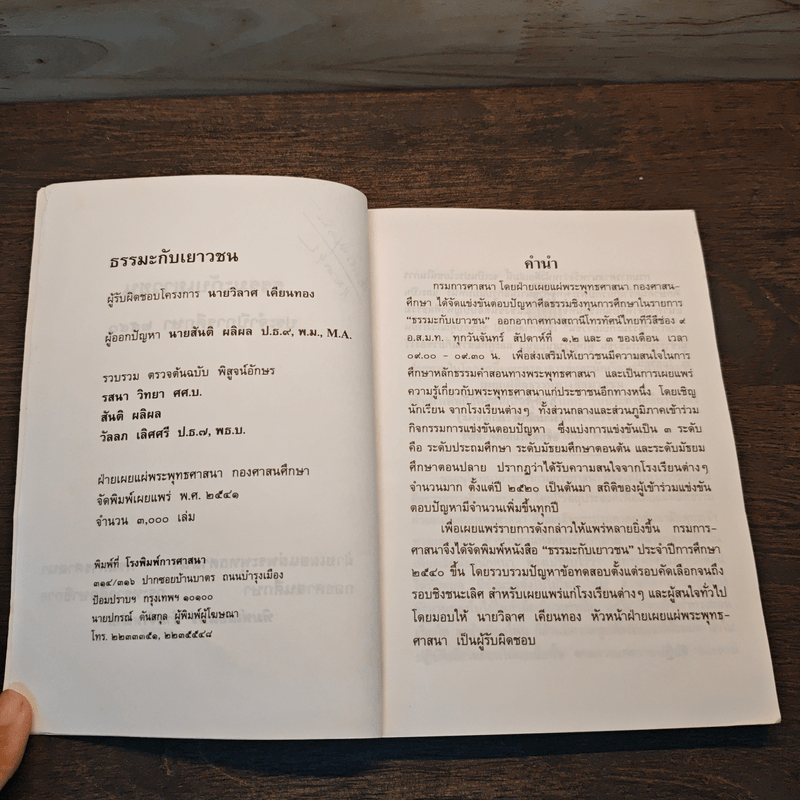 ธรรมะกับเยาวชน
ผู้รับผิดชอบโครงการ นายวิลาศ เดียนทอง
ผู้ออกปัญหา นายสันติ ผลิผล ป.ธ.๙, พ.ม., M.A.
รวบรวม ตรวจต้นฉบับ พิสูจน์อักษร
รสนา วิทยา ศศ.บ.
สันติ ผลิผล
วัลลภ เลิศศรี ป.ธ.๗, พธ.บ.
ฝ่ายเผยแผ่พระพุทธศาสนา กองศาสนศึกษา
จัดพิมพ์เผยแพร่ พ.ศ. ๒๕๔๑
จำนวน ๓,๐๐๐ เล่ม
พิมพ์ที่ โรงพิมพ์การศาสนา
๓๑๔/๓๑๖ ปากซอยบ้านบาตร ถนนบำรุงเมือง
ป้อมปราบฯ กรุงเทพฯ ๑๐๑๐๐
นายปกรณ์ ตันสกุล ผู้พิมพ์ผู้โฆษณา
โทร. ๒๒๓๓๓๕๑, ๒๒๓๕๕๔๘
คำนำ
กรมการศาสนา โดยฝ่ายเผยแผ่พระพุทธศาสนา กองศาสน-
ศึกษา ได้จัดแข่งขันตอบปัญหาศีลธรรมชิงทุนการศึกษาในรายการ
“ธรรมะกับเยาวชน” ออกอากาศทางสถานีโทรทัศน์ไทยทีวีสีช่อง ๙
อ.ส.ม.ท. ทุกวันจันทร์ สัปดาห์ที่ ๑,๒ และ ๓ ของเดือน เวลา
๐๙.๐๐ – ๐๙.๓๐ น. เพื่อส่งเสริมให้เยาวชนมีความสนใจในการ
ศึกษาหลักธรรมคำสอนทางพระพุทธศาสนา และเป็นการเผยแพร่
ความรู้เกี่ยวกับพระพุทธศาสนาแก่ประชาชนอีกทางหนึ่ง โดยเชิญ
นักเรียน จากโรงเรียนต่างๆ ทั้งส่วนกลางและส่วนภูมิภาคเข้าร่วม
กิจกรรมการแข่งขันตอบปัญหา ซึ่งแบ่งการแข่งขันเป็น ๓ ระดับ
คือ ระดับประถมศึกษา ระดับมัธยมศึกษาตอนต้น และระดับมัธยม
ศึกษาตอนปลาย ปรากฏว่าได้รับความสนใจจากโรงเรียนต่างๆ
จำนวนมาก ตั้งแต่ปี ๒๕๒๐ เป็นต้นมา สถิติของผู้เข้าร่วมแข่งขัน
ตอบปัญหามีจำนวนเพิ่มขึ้นทุกปี
เพื่อเผยแพร่รายการดังกล่าวให้แพร่หลายยิ่งขึ้น กรมการ-
ศาสนาจึงได้จัดพิมพ์หนังสือ “ธรรมะกับเยาวชน” ประจำปีการศึกษา
๒๕๔๐ ขึ้น โดยรวบรวมปัญหาข้อทดสอบตั้งแต่รอบคัดเลือกจนถึง
รอบชิงชนะเลิศ สำหรับเผยแพร่แก่โรงเรียนต่างๆ และผู้สนใจทั่วไป
โดยมอบให้ นายวิลาศ เดียนทอง หัวหน้าฝ่ายเผยแผ่พระพุทธ-
ศาสนา เป็นผู้รับผิดชอบ